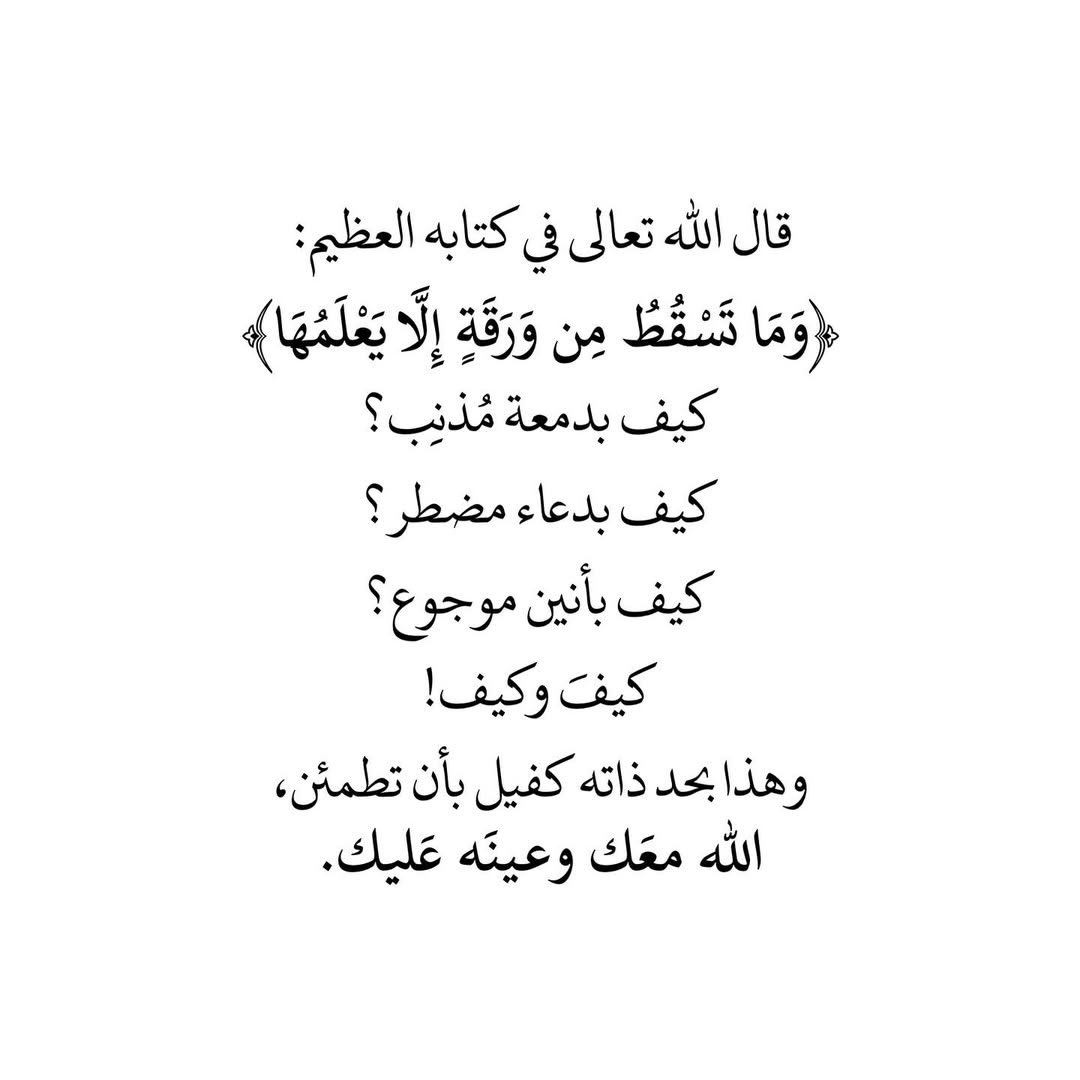 قال الله تعالى في كتابه العظيم:
﴿وَمَا تَسْقُطُ مِن وَرَقَةٍ إِلَّا يَعْلَمُهَا﴾
كيف بدمعة مُذنِب؟
كيف بدعاء مضطر؟
كيف بأنين موجوع؟
كيفَ وكيف!
وهذا بحد ذاته كفيل بأن تطمئن،
الله معَك وعينَه عَليك.